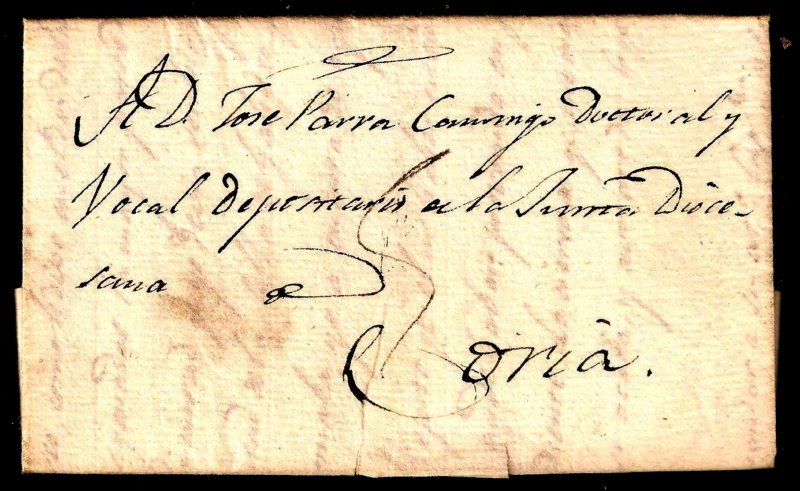 A D. Jose Parra Canonigo Doctoral y
Vocal Depositario de la Junta Dioce-
sana
Coria.